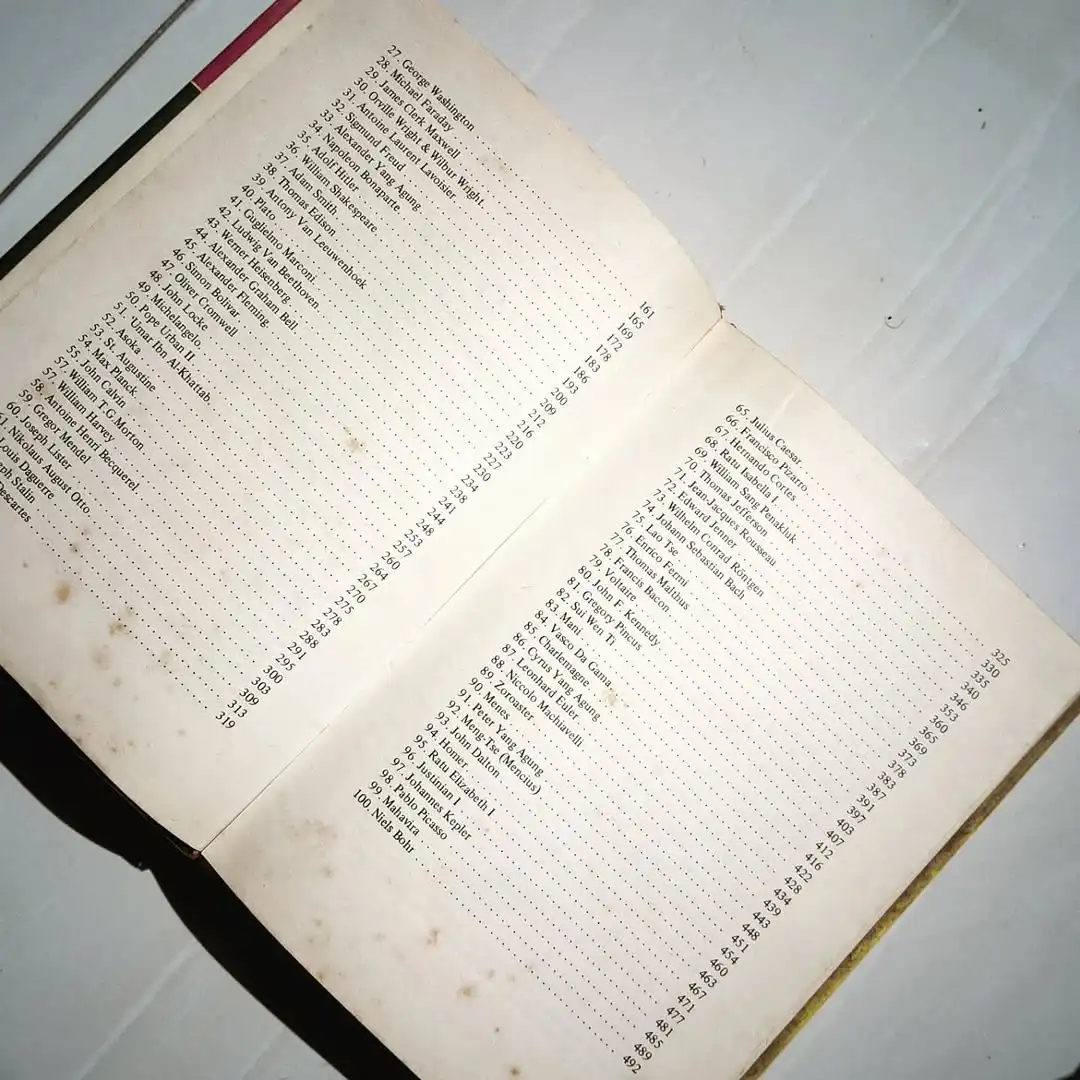 27. George Washington 161
28. Michael Faraday 165
29. James Clerk Maxwell 169
30. Orville Wright & Wilbur Wright 172
31. Antoine Laurent Lavoisier 178
32. Sigmund Freud 183
33. Alexander Yang Agung 186
34. Napoleon Bonaparte 193
35. Adolf Hitler 200
36. William Shakespeare 209
37. Adam Smith 212
38. Thomas Edison 216
39. Antony Van Leeuwenhoek 220
40. Plato 223
41. Guglielmo Marconi 227
42. Ludwig Van Beethoven 230
43. Werner Heisenberg 234
44. Alexander Graham Bell 238
45. Alexander Fleming 241
46. Simon Bolivar 244
47. Oliver Cromwell 248
48. John Locke 253
49. Michelangelo 257
50. Pope Urban II 260
51. Umar Ibn Al-Khattab 264
52. Asoka 267
53. St. Augustine 270
54. Max Planck 275
55. John Calvin 278
57. William T.G. Morton 283
57. William Harvey 288
58. Antoine Henri Becquerel 291
59. Gregor Mendel 295
60. Joseph Lister 300
61. Nikolaus August Otto 303
Louis Daguerre 309
ph Stalin 313
Descartes 319
65. Julius Caesar 325
66. Francisco Pizarro 330
67. Hernando Cortes 335
68. Ratu Isabella I 340
69. William Sang Penakluk 346
70. Thomas Jefferson 353
71. Jean-Jacques Rousseau 360
72. Edward Jenner 365
73. Wilhelm Conrad Röntgen 369
74. Johann Sebastian Bach 373
75. Lao Tse 378
76. Enrico Fermi 383
77. Thomas Malthus 387
78. Francis Bacon 391
79. Voltaire 397
80. John F. Kennedy 403
81. Gregory Pincus 407
82. Sui Wen Ti 412
83. Mani 416
84. Vasco Da Gama 422
85. Charlemagne 428
86. Cyrus Yang Agung 434
87. Leonhard Euler 439
88. Niccolo Machiavelli 443
89. Zoroaster 448
90. Menes 451
91. Peter Yang Agung 454
92. Meng-Tse (Mencius) 460
93. John Dalton 463
94. Homer 467
95. Ratu Elizabeth I 471
96. Justinian I 477
97. Johannes Kepler 481
98. Pablo Picasso 485
99. Mahavira 489
100. Niels Bohr 492